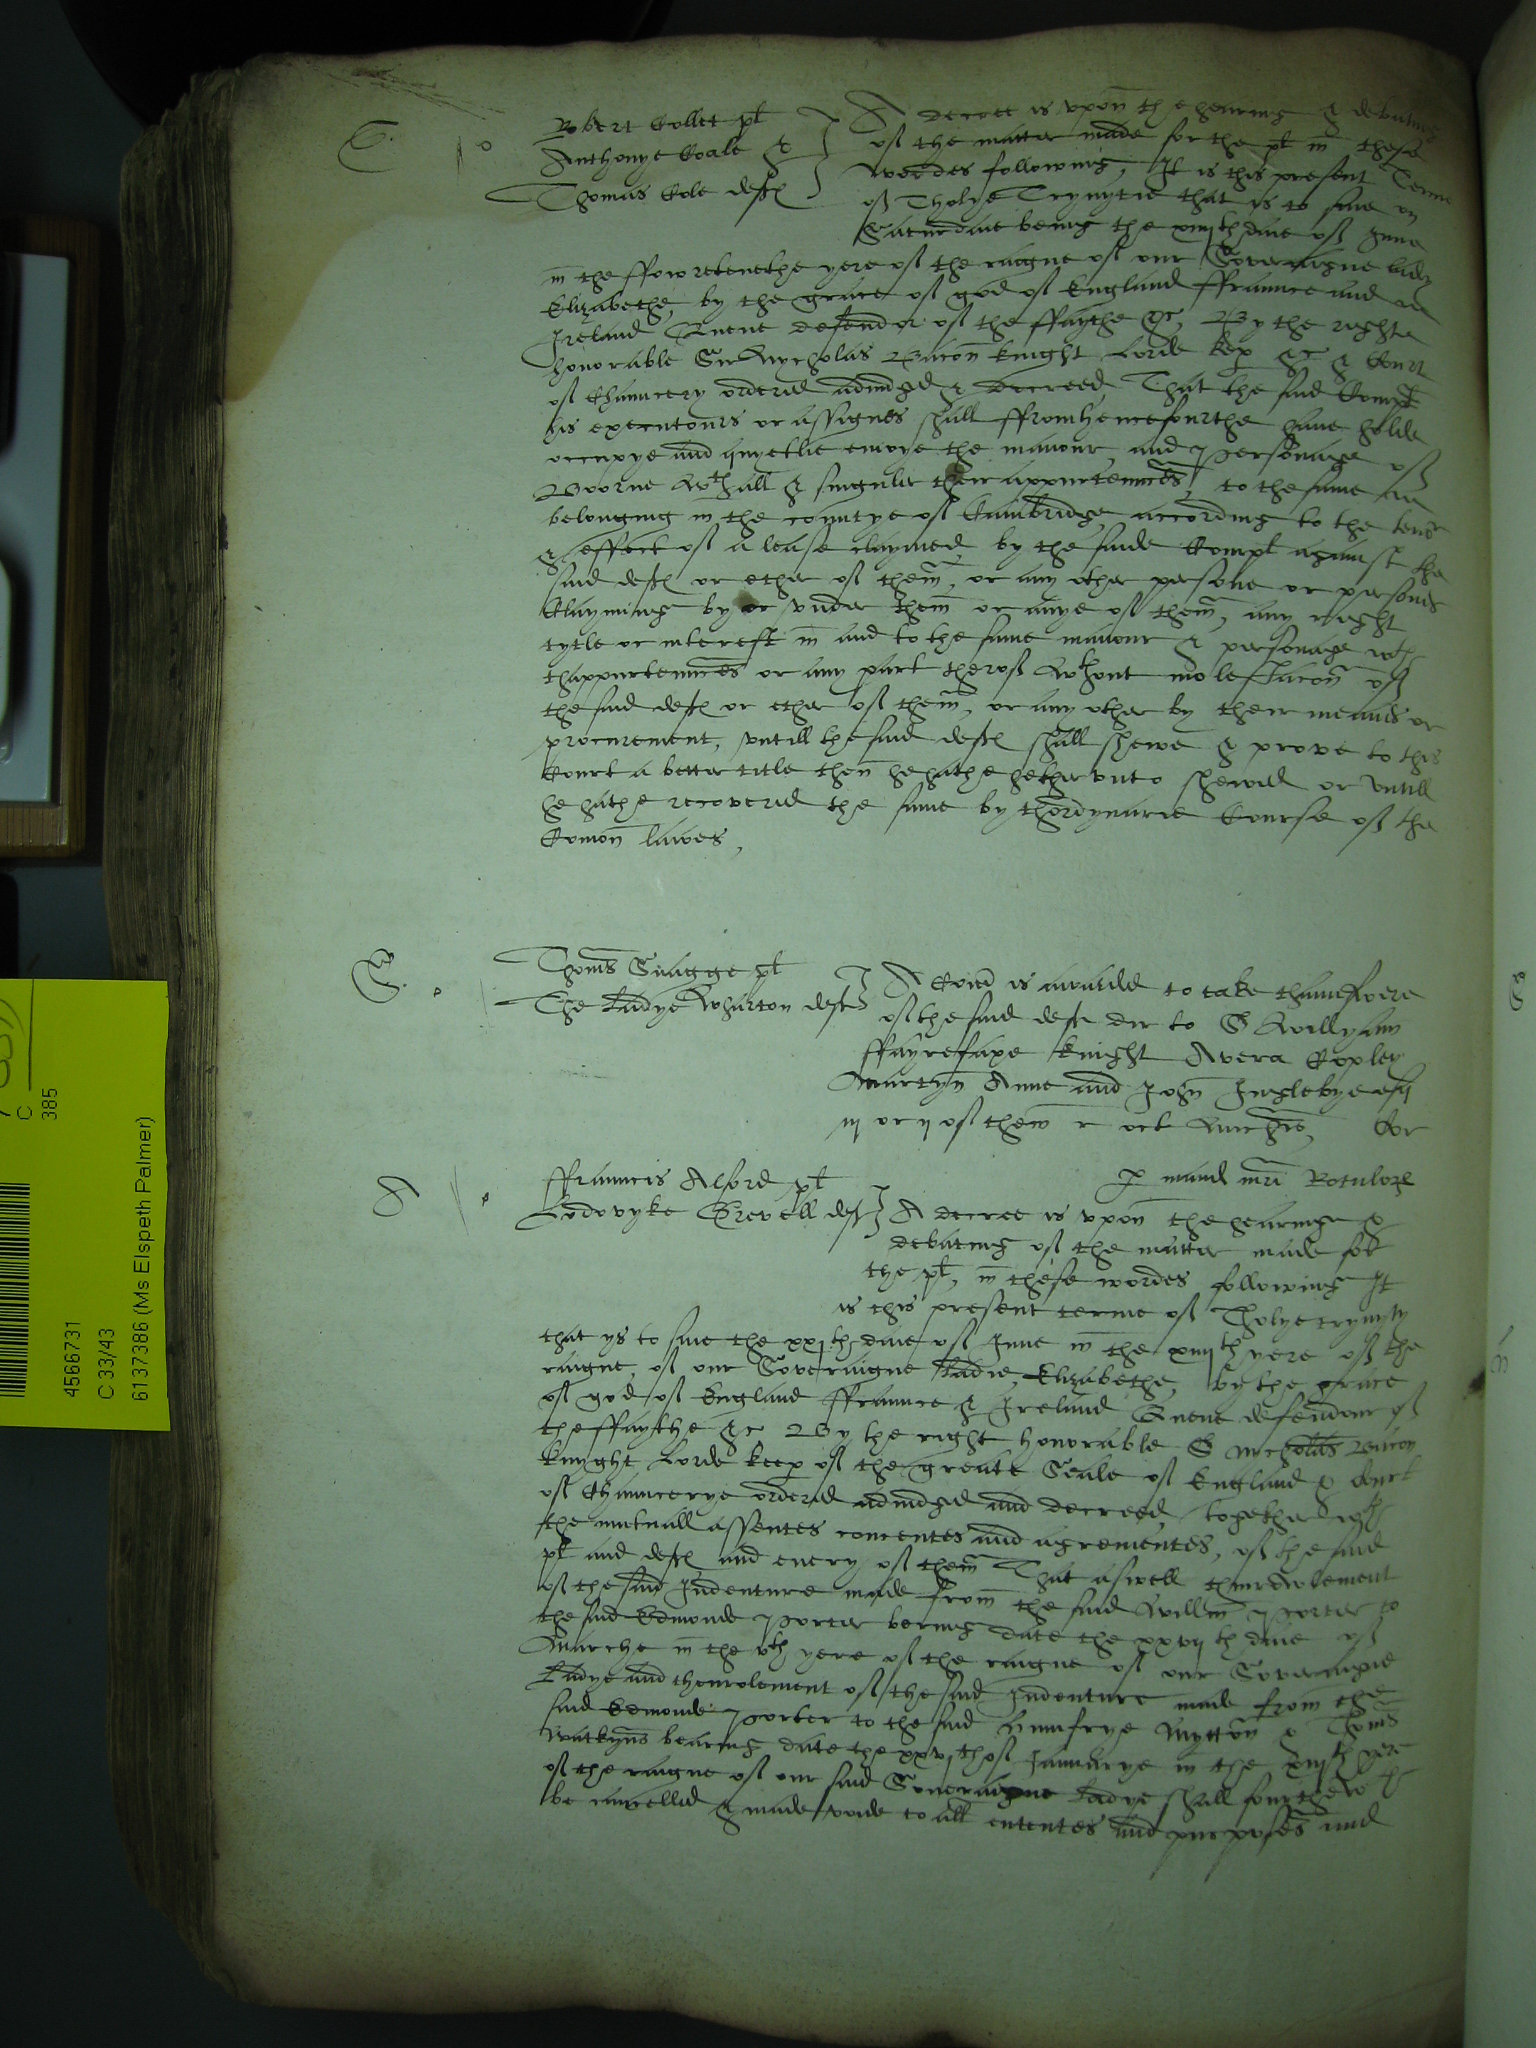 C.
Robert Collet pł
Anthonye Coale &
Thomas Cole deft
A decree is vpon the hearing & debating
of the matter made for the pł in these
wordes following, It is this present Terme
of Tholye Trynytie that is to saie on
Saturdaie being the xiiijth daie of June
in the ffowretenethe yere of the raigne of our Soveraigne ladie
Elizabethe, by the grace of god of England ffraunce and
Ireland Quene defendor of the ffaythe &c, By the righte
honorable Sir Nycholas Bacon knight Lorde kep &c & Court
of Chauncery ordered adiudged & decreed That the said Complt
his executours or assignes shall ffromhencefourthe have holde
occupye and quyetlie enioye the manour and personage of
Boorne wth all & singuler their appurtenncēs to the same
belonging in the countye of Cambridge according to the tenor
& effect of a lease claymed by the saide Complt against the
said deft or ether of them, or any other persone or persones
Clayming by or vnder them or anye of them, any right
tytle or interest in and to the same manour & personage wth
thappurtenncēs or any part therof wthout molestacon of
the said deft or ether of them, or any other by their meanes or
procurement, vntill the said deft shall shewe & prove to this
Court a better title then he hathe hethervnto shewed or vntill
he hathe recovered the same by thordynarie Course of the
Comon lawes,
S.
Thoms Snagge pł
The Ladye Wharton deft
A Comd is awarded to take thaunswere
of the said deft dir to S Willyam
ffayrefaxe knight Avera Copley
Martyn Anne and John Inglebye esq
iij or ij of them r oct Michis, Cor
A
ffrauncis Alford pł
Lodovyke Grevell deft
p mand mri Rotulor
A decree is vpon the hearinge &
debating of the matter made for
the pł, in these wordes following It
is this present terme of Tholye trynyty
that ys to saie the xxjth daie of June in the xiiijth yere of the
raigne of our Soveraigne Ladie Elizabethe, by the grace
of god of England ffraunce & Ireland Quene defendour of
the ffaythe &c By the right honorable S Nicholas Bacon
knyght Lorde keep of the greate Seale of England & Court
of Chauncerye ordered adiudged and decreed, together wth
the mutuall assentes concentes and agrementes, of the said
pł and deft and every of them That aswell thinrolement
of the said Indenture made from the said Willm Porter to
the said Edmonde Porter bering date the xxvijth daie of
Marche in the vth yere of the raigne of our Soveraigne
Ladye and thenrolement of the said Indenture made from the
said Edmonde Porter to the said Humfrye Mytton & Thoms
Watkyns bearing date the xxvjth of Januarye in the xiijth yere
of the raigne of our said Soueraigne Ladye shall fourthewth
be cancelled & made voide to all ententes and purposes and
C
385
4566731
C 33/43
6137386 (Ms Elspeth Palmer)